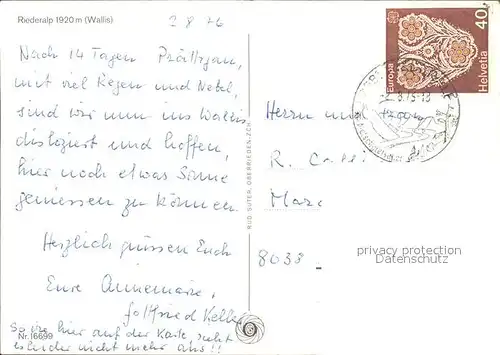 Riederalp 1920 m (Wallis)
2 8 76
Nach 14 Tagen Prättigau,
mit viel Regen und Nebel,
sind wir nun ins Wallis
disloziert und hoffen,
hier noch etwas Sonne
geniessen zu können
Herzlich grüssen Euch
Eure Annemarie,
Gottfried Keller
So wie hier auf der Karte sieht
es leider nicht mehr aus!!
Nr. 16699
RUD. SUTER, OBERRIEDEN-ZCH
Europa
Helvetia
40
Herrn und
Frau
R.
8033
privacy protection
Datenschutz